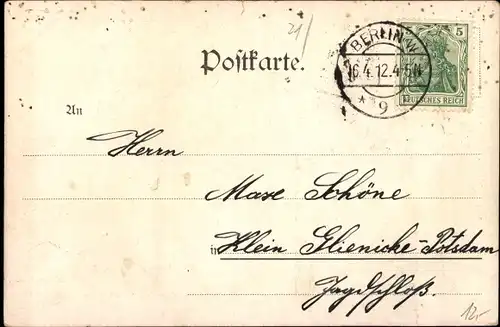 21/
BERLIN W.
5
Postkarte.
16.4.12.4-5N
* 9
DEUTSCHES REICH
An
Herrn
Max Schöne
in Klein Glienicke-Potsdam
Jagdschloß.
12,-